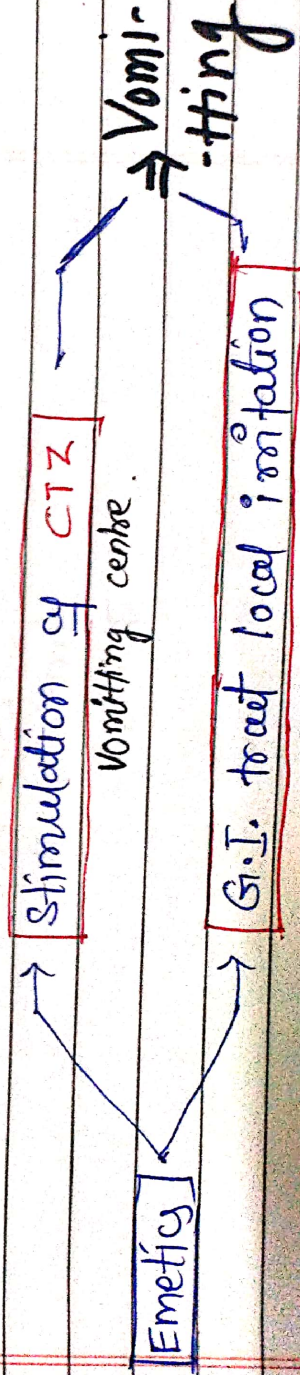 Emetics
Stimulation of CTZ
Vomitting centre.
G.I. tract local irritation
⇒ Vomi-
-tting